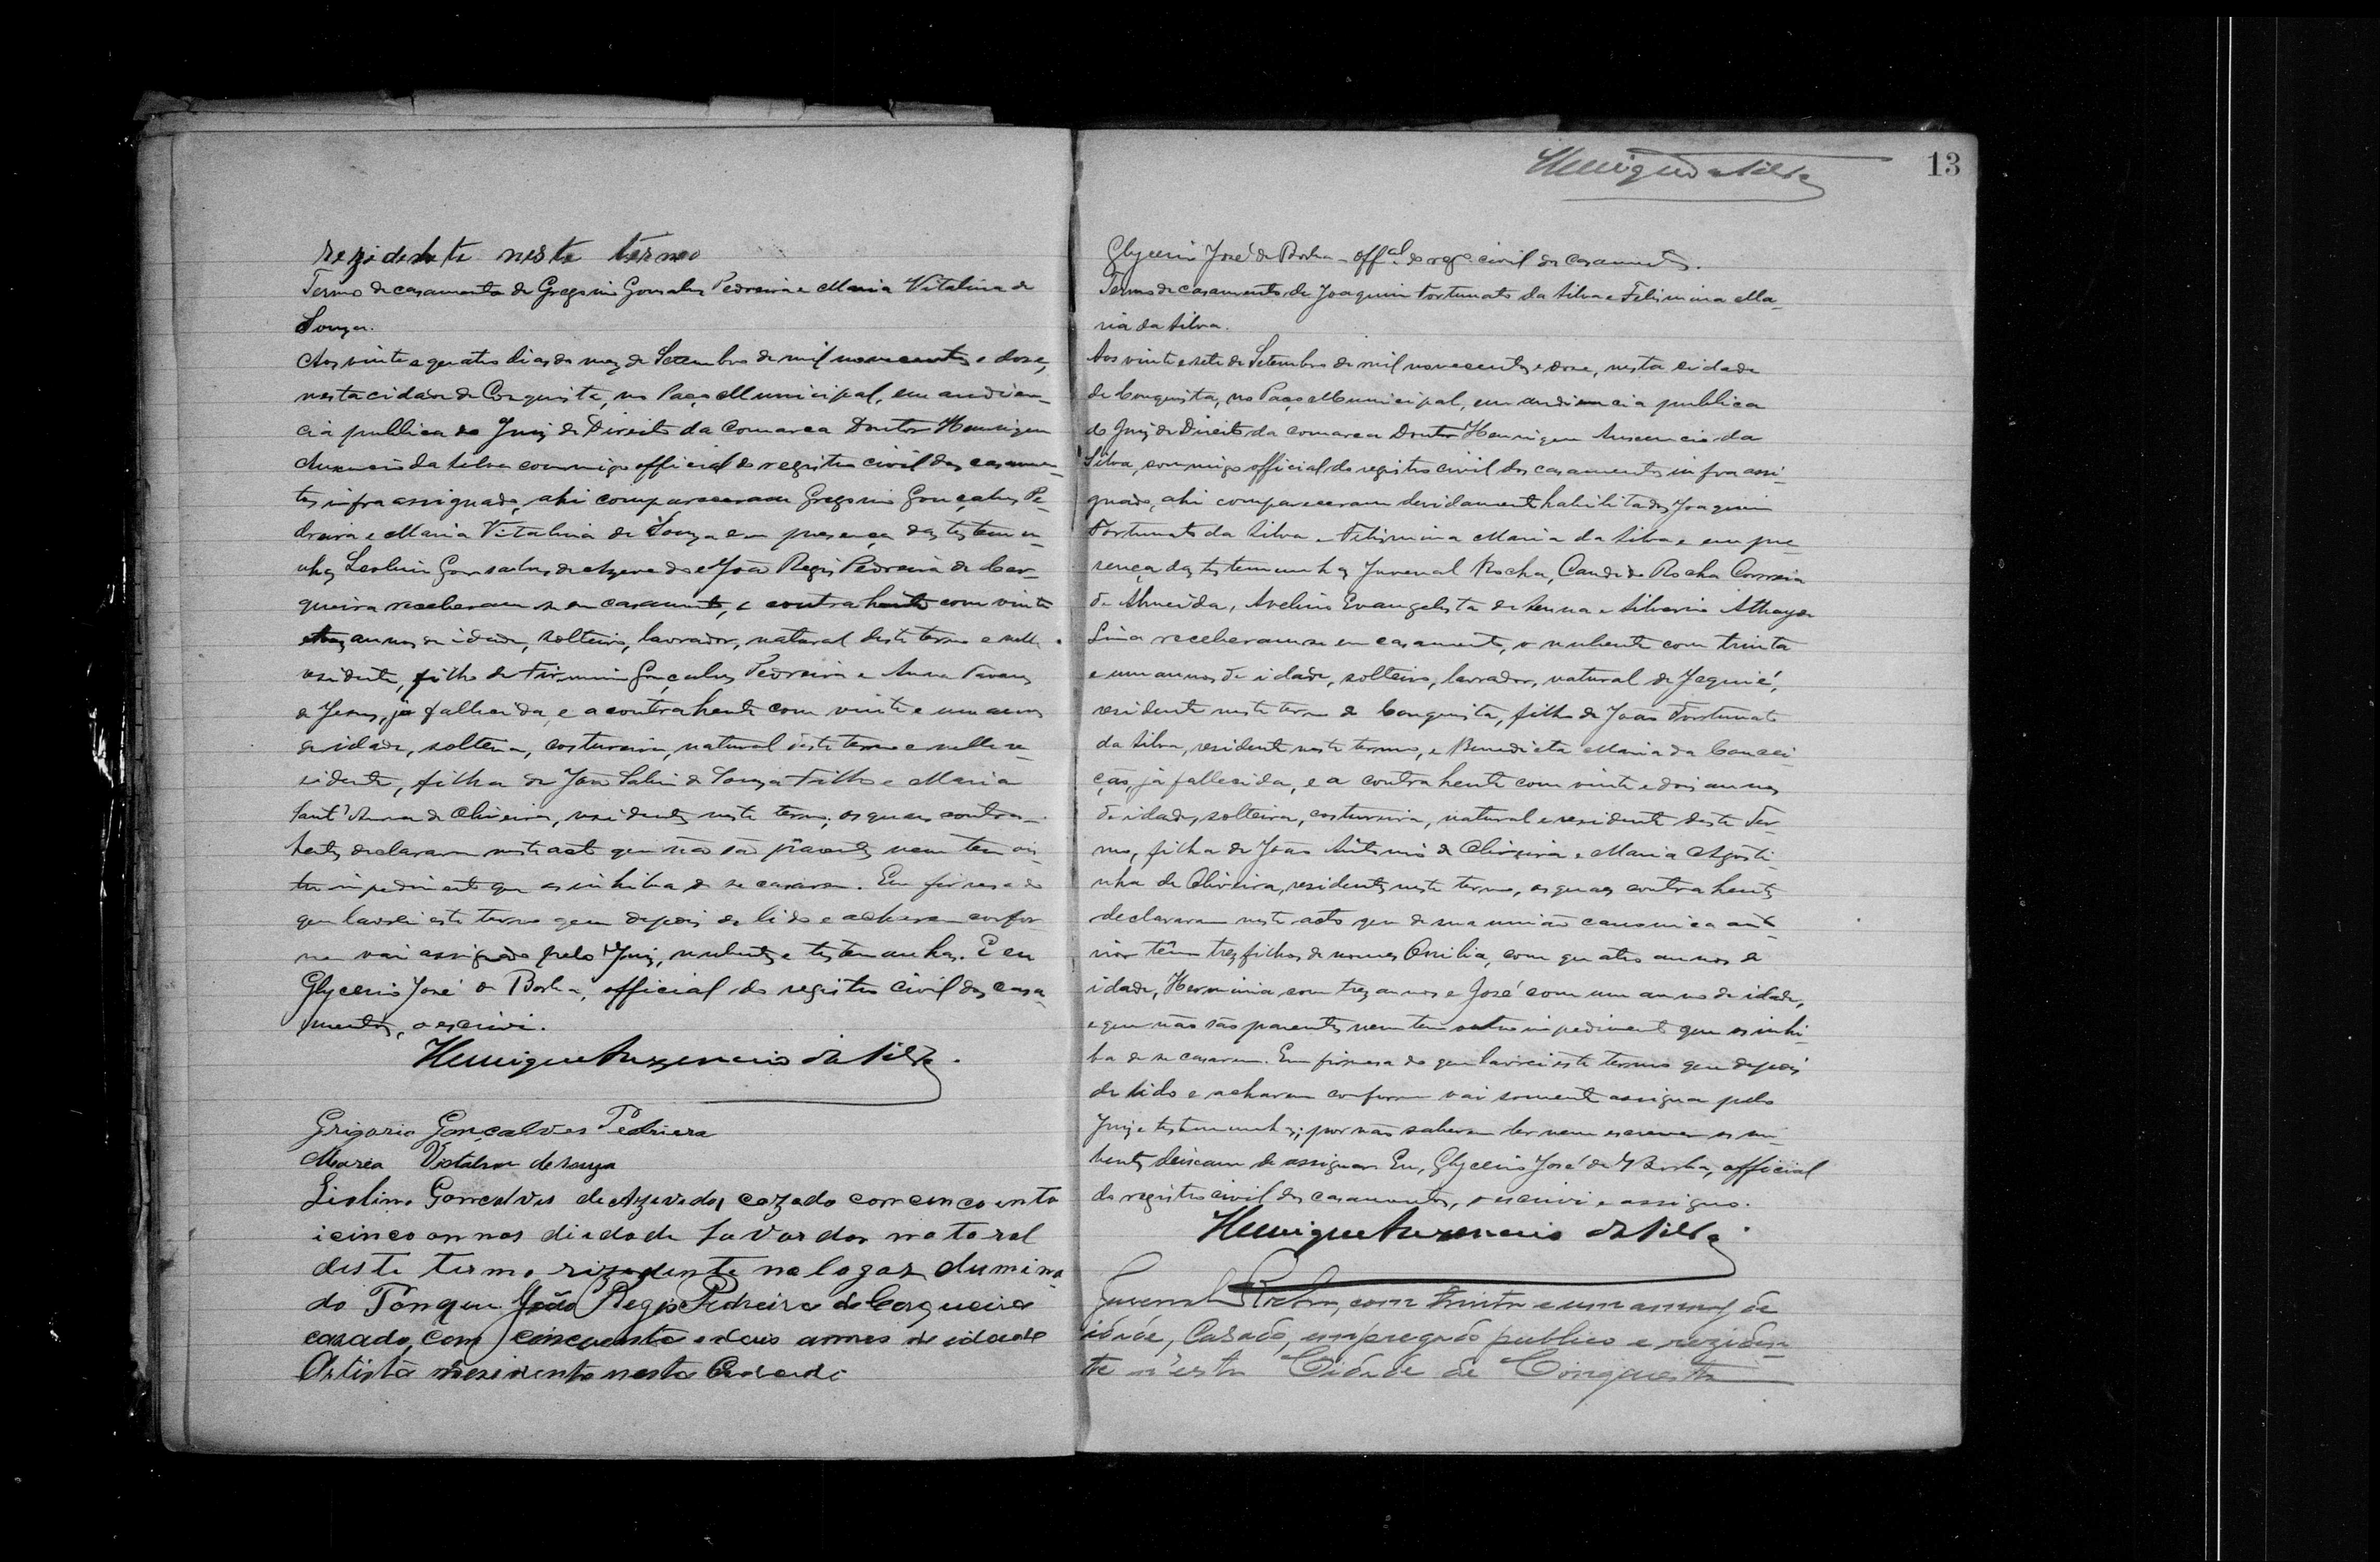 rezidente neste termo
Termo de casamento de Gregorio Gonsalves Pedreira e Maria Vitalina de
Souza.
Aos vinte e quatro dias do mez de Setembro de mil novecentos e doze,
nesta cidade de Conquista, no Paço Municipal, em audien-
cia publica do Juiz de Direito da Comarca Doutor Henrique
Auxencio da Silva commigo official do registro civil dos casamen-
tos infra assignado, ahi compareceram Gregorio Gonçalves Pe-
dreira e Maria Vitalina de Souza e em presença das testemu-
nhas Leolino Gonsalves de Azevedo e João Regis Pedreira de Cer-
queira receberam-se em casamento, o contrahente com vinte
e tres annos de idade, solteiro, lavrador, natural deste termo e nelle
residente, filho de Firmino Gonçalves Pedreira e Anna
de Jesus, já fallecida, e a contrahente com vinte e um annos
de idade, solteira, costureira, natural deste termo e nelle re-
sidente, filha de João Sabin de Souza Filho e Maria
Sant'Anna de Oliveira, residentes neste termo; os quaes contra-
hentes declararam neste acto que não são parentes nem tem ou-
tro impedimento que os inhiba de se casarem. Em firmesa do
que lavrei este termo que depois de lido e acharem confor-
me vai assignado pelo Juiz, nubentes e testemunhas. E eu
Glycerio José da Rocha, official do registro civil dos casa-
mentos, o escrivi.
Henrique Auxencio da Silva.
Grigorio Gonçalves Pedriera
Maria Vistalina de souza
Liolino Goncalves de Azevedo, cazado com cincoenta
i cinco annos di edade lavardor natoral
deste termo rizedente no logar dumina
do Tanque João Regis Pedreira de Cerqueira
casado, com cincuenta e dois annos de idade
Artista residente nesta Cidade
Henrique da Silva
13
Glycerio José da Rocha - offal. do rego. civil dos casamentos.
Termo de casamento de Joaquim Fortunato da Silva e Felismina Ma-
ria da Silva.
Aos vinte e sete de Setembro de mil novecentos e doze, nesta cidade
de Conquista, no Paço Municipal, em audiencia publica
do Juiz de Direito da comarca Doutor Henrique Auxencio da
Silva, commigo official do registro civil dos casamentos infra assi-
gnado, ahi compareceram devidamente habilitados Joaquim
Fortunato da Silva e Felismina Maria da Silva e em pre-
sença das testemunhas Juvenal Rocha, Candido Rocha Correia
de Almeida, Avelino Evangelista de Senna e Silverio Athayde
Lima receberam-se em casamento, o nubente com trinta
e um annos de idade, solteiro, lavrador, natural de Jequié,
residente neste termo de Conquista, filho de João Fortunato
da Silva, residente neste termo, e Benedicta Maria da Concei-
ção, já fallecida, e a contrahente com vinte e dois annos
de idade, solteira, costureira, natural e residente deste ter-
mo, filha de João Antonio de Oliveira e Maria Agosti-
nha de Oliveira, residentes neste termo, os quaes contrahentes
declararam neste acto que de sua união canonica ante-
rior têm tres filhos de nomes Onilia, com quatro annos de
idade, Herminia com tres annos e José com um anno de idade,
e que não são parentes nem tem outro impedimento que os inhi-
ba de se casarem. Em firmesa do que lavrei este termo que depois
de lido e acharem conforme vai somente assigna pelo
Juiz e testemunhas; por não saberem ler nem escrever os nu-
bentes deixam de assignar. Eu, Glycerio José da Rocha, official
do registro civil dos casamentos, o escrivi e assigno.
Henrique Auxencio da Silva.
Juvenal Rocha, com trinta e um annos de
idade, Casado, empregado publico e reziden
te n'esta Cidade de Conquista